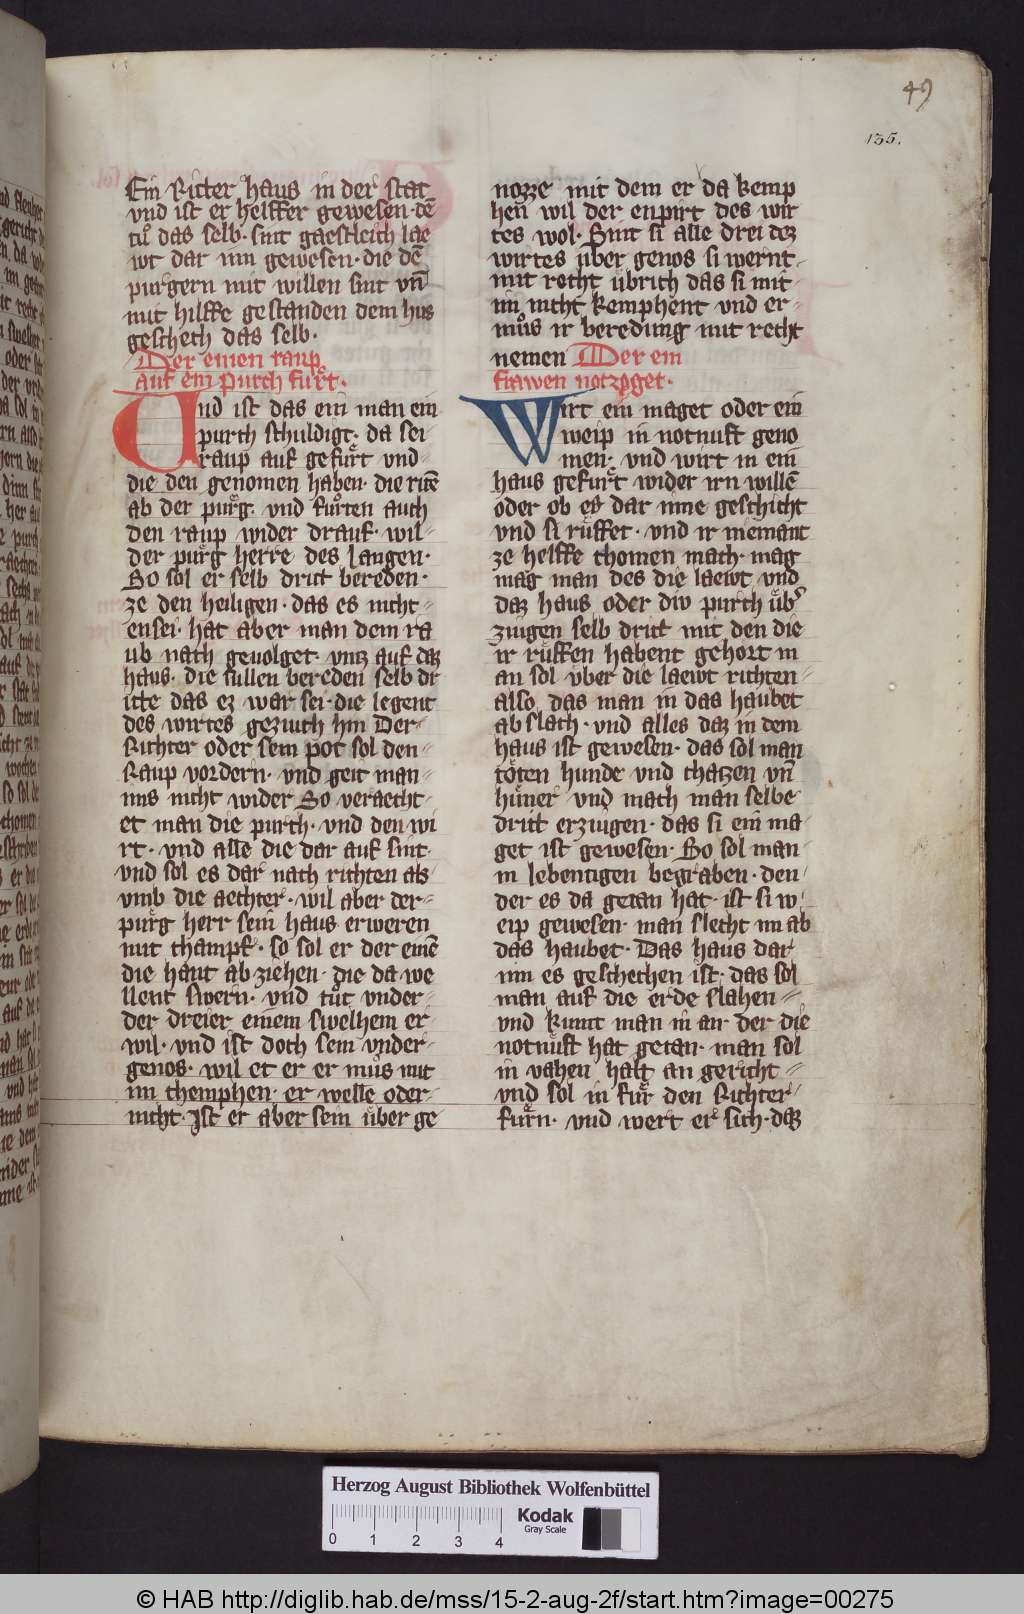 49
135.
Ein Ritter haus in der stat
vnd ist er helffer gewesen · dē
tuͦ das selb · sint gaestleich lae
wt dar inn gewesen · die dē
purgern mit willen sint vn̄
mit hilffe gestanden dem hus
geschech das selb ·
Der einen raup
auf ein purch furt ·
Und ist das ein man ein
purch schuldigt · da sei
raup auf gefuͤrt vnd
die den genomen haben · die ritē
ab der puͤrg · vnd fuͦrten auch
den raup wider drauf · wil
der puͤrg herre des laugen ·
So sol er selb dritt bereden ·
ze den heiligen · das es nicht
ensei · hat aber man dem ra
ub nach geuolget · vntz auf daz
haus · die sullen bereden selb dr
itte das ez war sei · die legent
des wirtes geziuch hin Der
Richter oder sein pot sol den
Raup vordern · vnd geit man
ims nicht wider So veraecht
et man die purch · vnd den wi
rt · vnd alle die dar auf sint ·
vnd sol es dar nach richten als
vmb die aechter · wil aber der
puͤrg herr sein haus erweren
mit champf · so sol er der einē
die haut ab ziehen · die da we
llent swern · vnd tuͦt vnder
der dreier einem swelhem er
wil · vnd ist doch sein vnder
genos · wil et er er muͦs mit
im chemphen · er welle oder
nicht · Ist er aber sein uͤber ge
nozze mit dem er da kemp
hen wil der enpirt des wir
tes wol · Sint si alle drei dez
wirtes uͤber genos si wernt
mit recht uͤbrich das si mit
im nicht kemphent vnd er
muͦs ir beredung mit recht
nemen Der ein
frawen notzoget ·
Wirt ein maget oder ein
weip in notnuft geno
men · vnd wirt in ein
haus gefuͤrt wider irn willē
oder ob es dar inne geschicht
vnd si ruͤffet · vnd ir niemant
ze helffe chomen mach · mag
mag man des die laewt vnd
daz haus oder div purch uͤb
ziugen selb dritt mit den die
ir ruͤffen habent gehort in
an sol vber die laewt richten
also das man in das haubet
ab slach · vnd alles daz in dem
haus ist gewesen · das sol man
toͤten hunde vnd chatzen vn̄
huͤner vnd mach man selbe
dritt erziugen · das si ein ma
get ist gewesen · So sol man
in lebentigen begraben · den
der es da getan hat · ist si w
eip gewesen · man slecht im ab
das haubet · Das haus dar
inn es geschechen ist · das sol
man auf die erde slahen
vnd kumt man in an der die
notnuͤft hat getan · man sol
in vahen halt an gericht
vnd sol in fuͤr den Richter
fuͤrn · vnd wert er sich · daz
Herzog August Bibliothek Wolfenbüttel
Kodak
Gray Scale
0 1 2 3 4
© HAB http://diglib.hab.de/mss/15-2-aug-2f/start.htm?image=00275